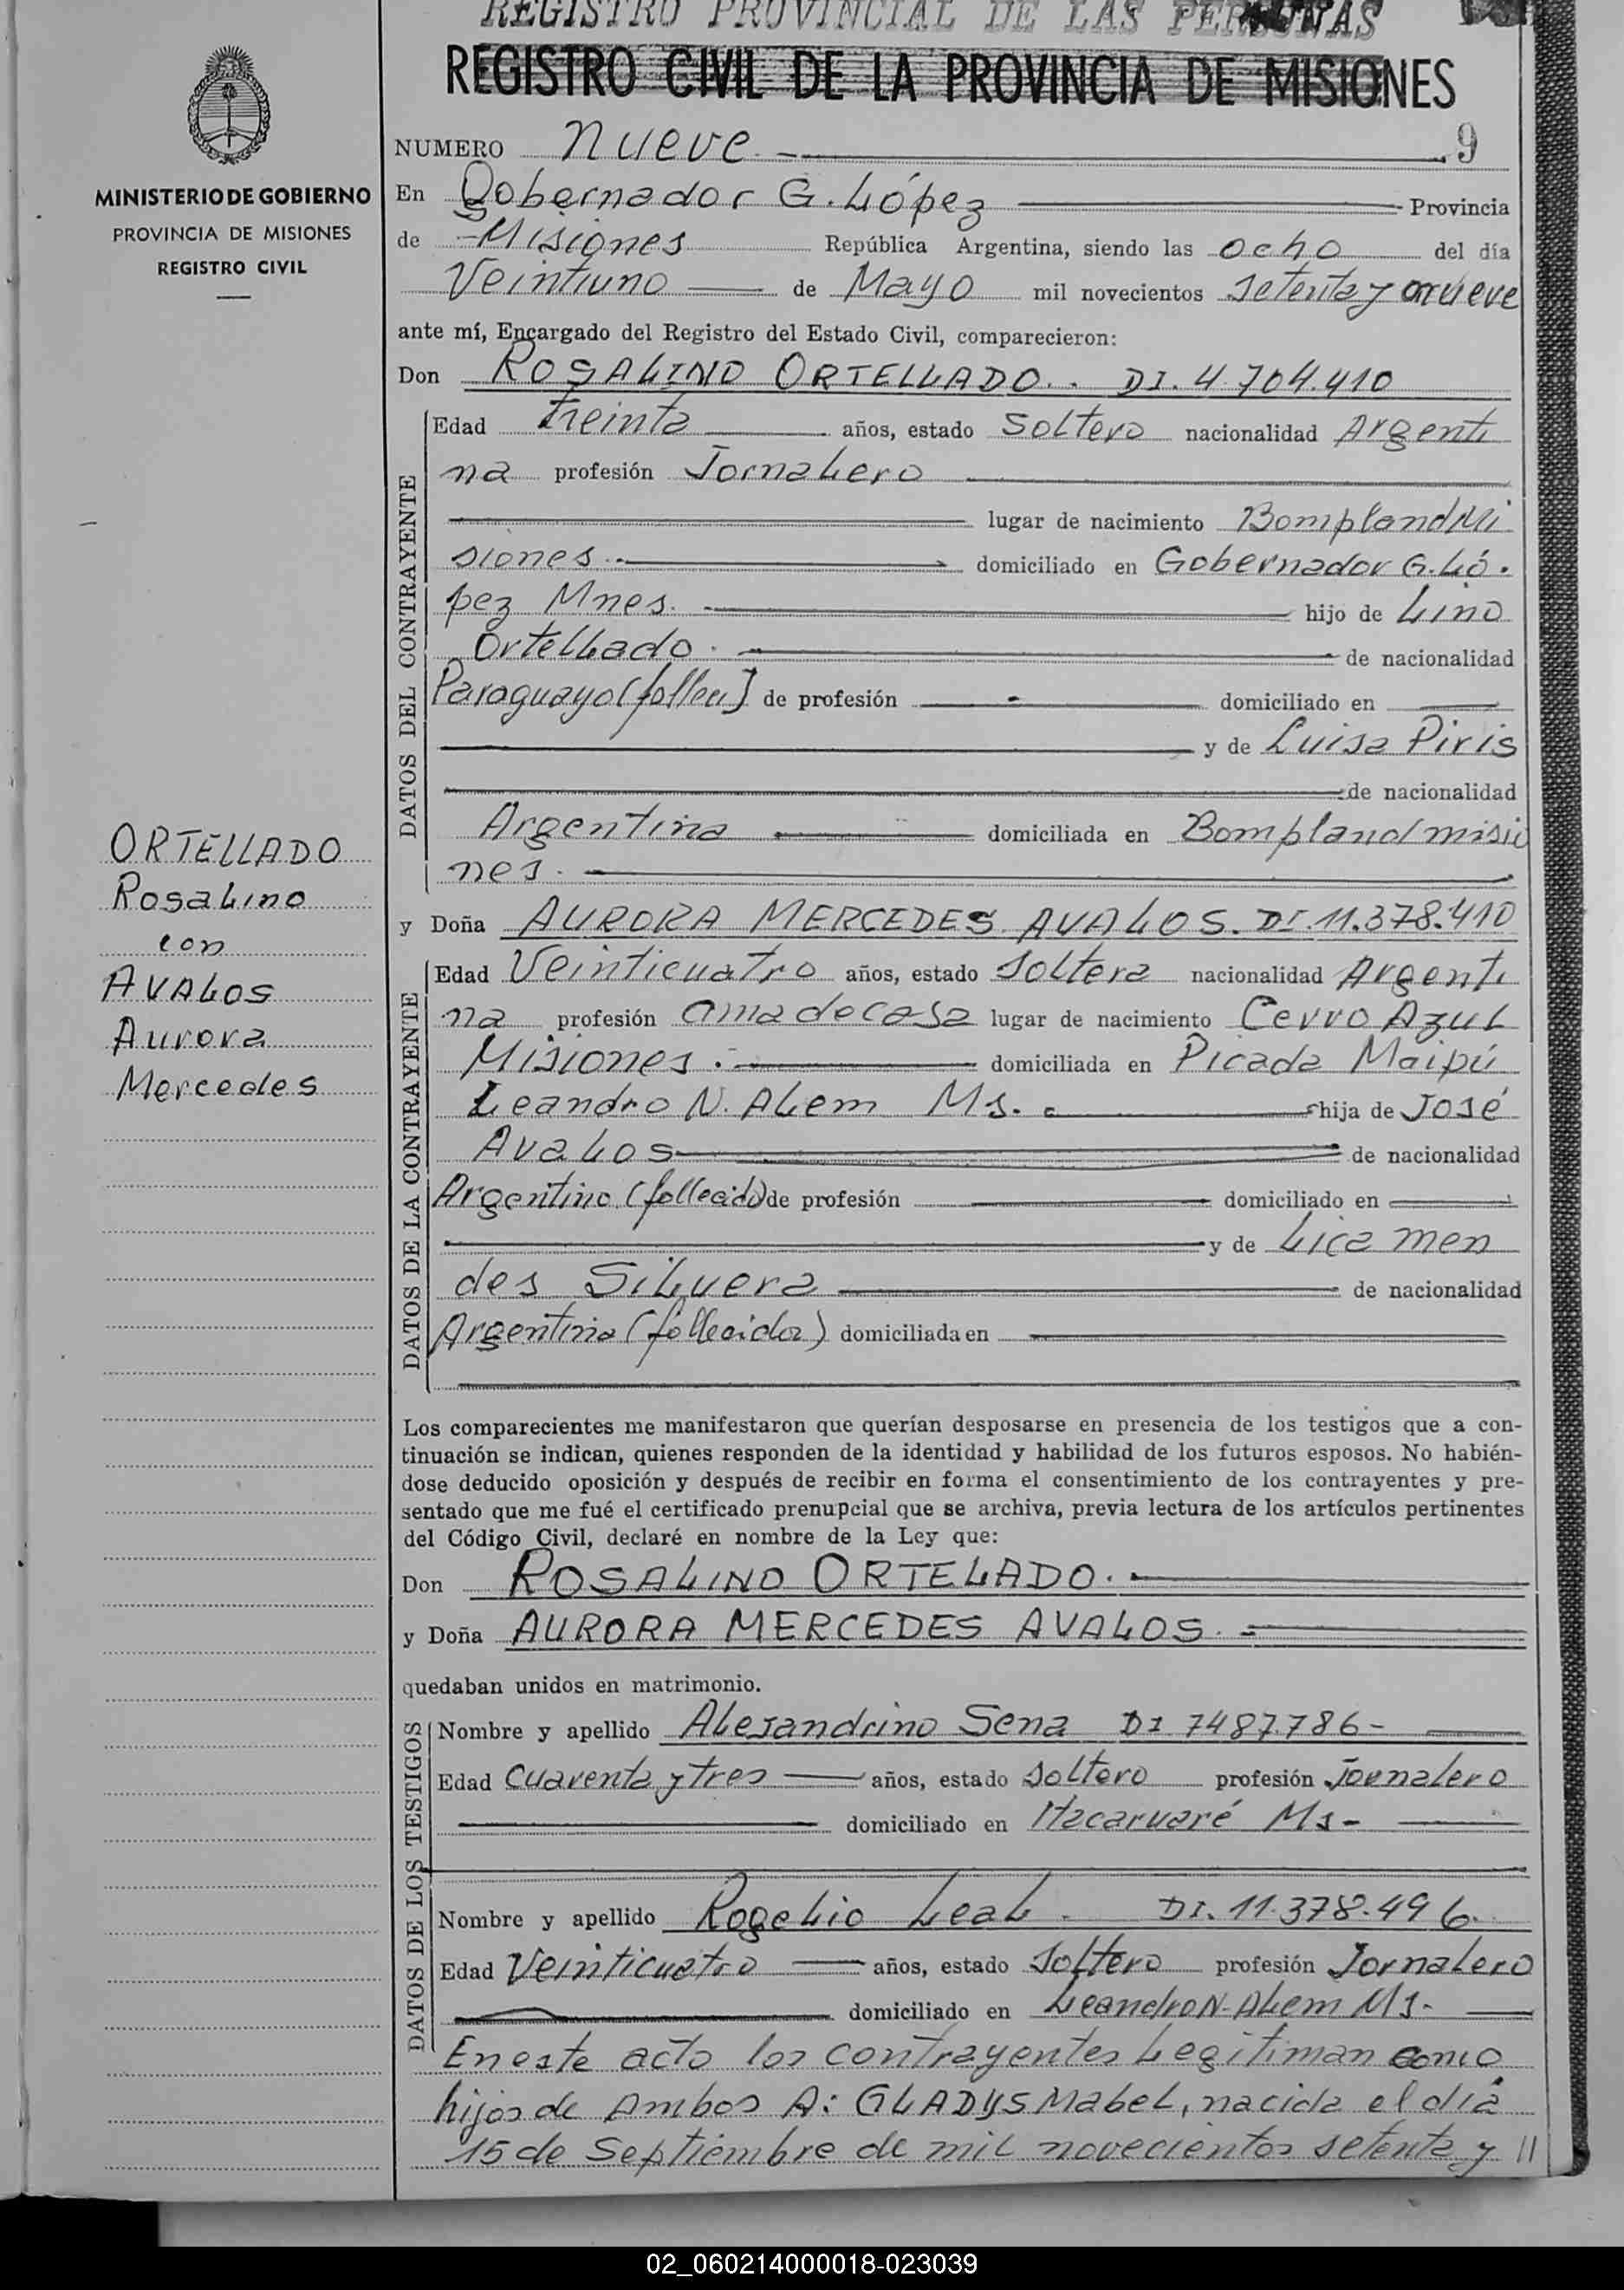 REGISTRO PROVINCIAL DE LAS PERSONAS
REGISTRO CIVIL DE LA PROVINCIA DE MISIONES
MINISTERIO DE GOBIERNO
PROVINCIA DE MISIONES
REGISTRO CIVIL
NUMERO nueve 9
En Gobernador G. López Provincia
de Misiones República Argentina, siendo las ocho del día
Veintiuno de Mayo mil novecientos setenta y nueve
ante mí, Encargado del Registro del Estado Civil, comparecieron:
Don ROSALINO ORTELLADO. DI. 4.704.410
DATOS DEL CONTRAYENTE
Edad treinta años, estado soltero nacionalidad Argenti
na profesión Jornalero
lugar de nacimiento Bompland Mi
siones domiciliado en Gobernador G. Ló.
pez Mnes. hijo de Lino
Ortellado. de nacionalidad
Paraguayo (fallec) de profesión domiciliado en
y de Luisa Piris
de nacionalidad
Argentina domiciliada en Bompland misio
nes.
ORTELLADO
Rosalino
con
AVALOS
Aurora
Mercedes
y Doña AURORA MERCEDES AVALOS. DI. 11.378.410
DATOS DE LA CONTRAYENTE
Edad Veinticuatro años, estado soltera nacionalidad Argenti
na profesión ama de casa lugar de nacimiento Cerro Azul
Misiones. domiciliada en Picada Maipú
Leandro N. Alem Ms. hija de José
Avalos de nacionalidad
Argentino (fallecido) de profesión domiciliado en
y de Lica men
des Silvera de nacionalidad
Argentina (fallecida) domiciliada en
Los comparecientes me manifestaron que querían desposarse en presencia de los testigos que a con-
tinuación se indican, quienes responden de la identidad y habilidad de los futuros esposos. No habién-
dose deducido oposición y después de recibir en forma el consentimiento de los contrayentes y pre-
sentado que me fué el certificado prenupcial que se archiva, previa lectura de los artículos pertinentes
del Código Civil, declaré en nombre de la Ley que:
Don ROSALINO ORTELADO.
y Doña AURORA MERCEDES AVALOS.
quedaban unidos en matrimonio.
DATOS DE LOS TESTIGOS
Nombre y apellido Alejandrino Sena DI 7487.786-
Edad Cuarenta y tres años, estado soltero profesión Jornalero
domiciliado en Itacaruaré Ms-
Nombre y apellido Rogelio Leal. DI. 11.378.496.
Edad Veinticuatro años, estado soltero profesión Jornalero
domiciliado en Leandro N- Alem Ms-
En este acto los contrayentes Legitiman como
hijos de Ambos A: GLADYS Mabel, nacida el día
15 de Septiembre de mil novecientos setenta y //
02_060214000018-023039